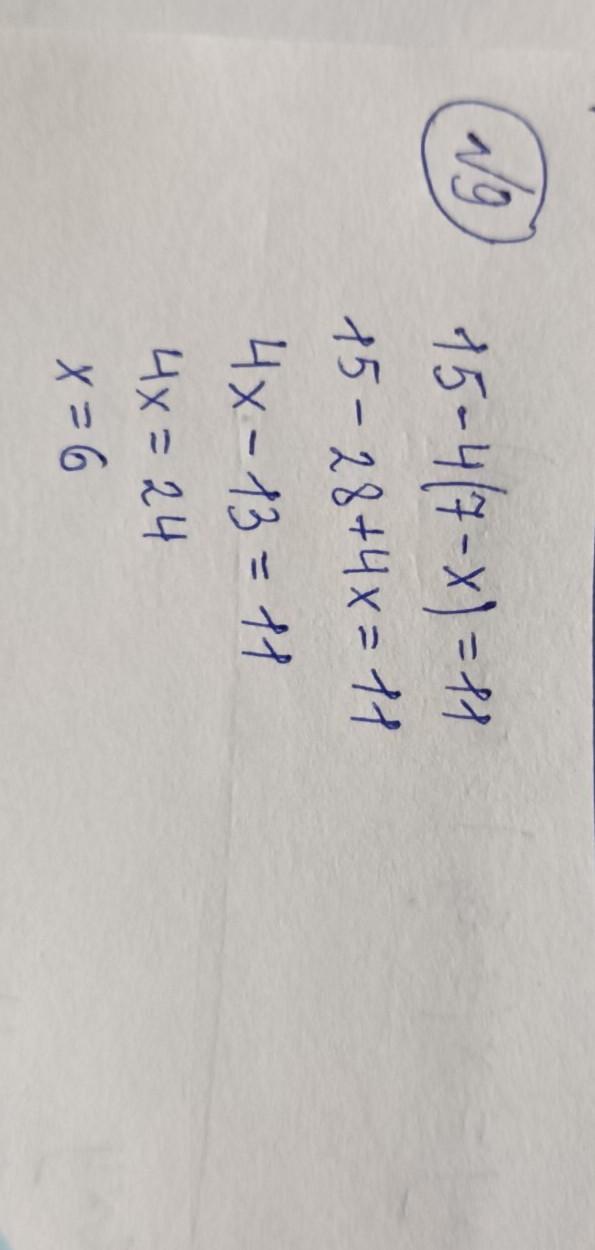 №9
15-4(7-x)=11
15-28+4x=11
4x-13=11
4x=24
x=6